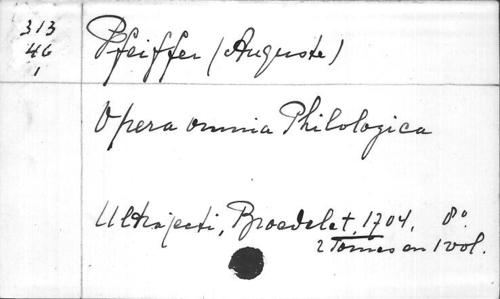 313
46
1
Pfeiffer (Auguste)
Opera omnia Philologica
Ultrajecti, Broedelet, 1704. 8º.
2 Tomes en 1 vol.